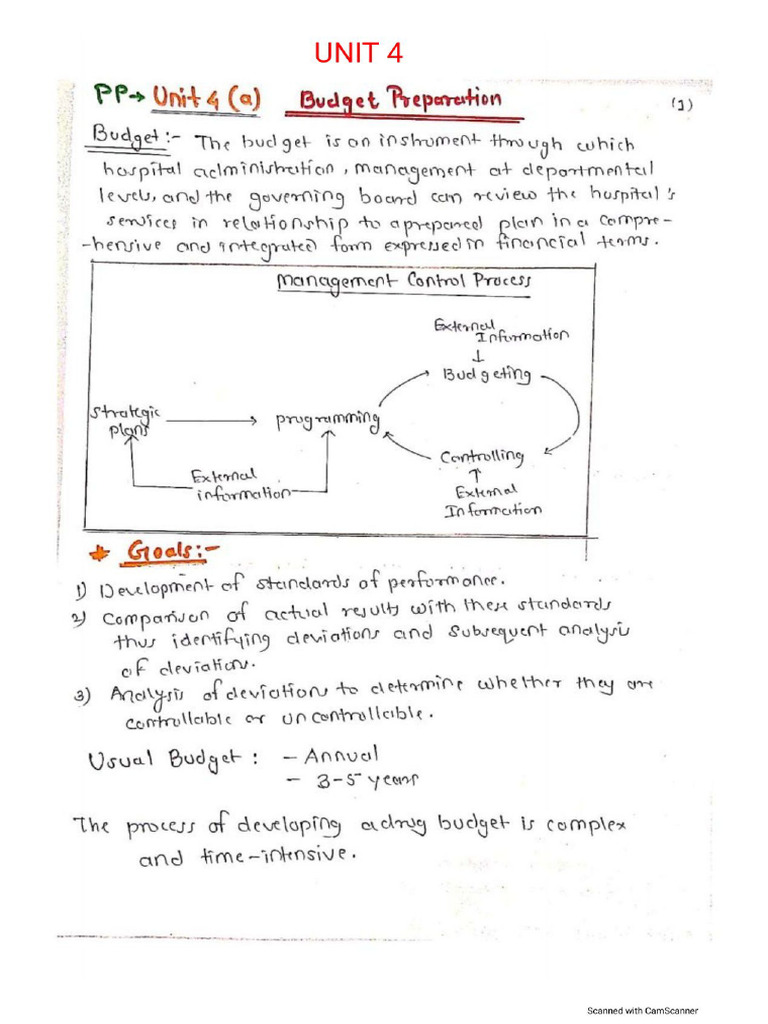 UNIT 4
PP→ Unit 4 (a) Budget Preparation (1)
Budget:- The budget is an instrument through which
hospital administration, management at departmental
levels, and the governing board can review the hospital's
services in relationship to a prepared plan in a compre-
-hensive and integrated form expressed in financial terms.
Management Control Process
External
Information
↓
Budgeting
Strategic
plans
→ programming
Controlling
↑
External
Information
External
information
* Goals:-
1) Development of standards of performance.
2) Comparison of actual results with these standards
thus identifying deviations and subsequent analysis
of deviation.
3) Analysis of deviation to determine whether they are
controllable or uncontrollable.
Usual Budget: - Annual
- 3-5 years
The process of developing a drug budget is complex
and time-intensive.
Scanned with CamScanner